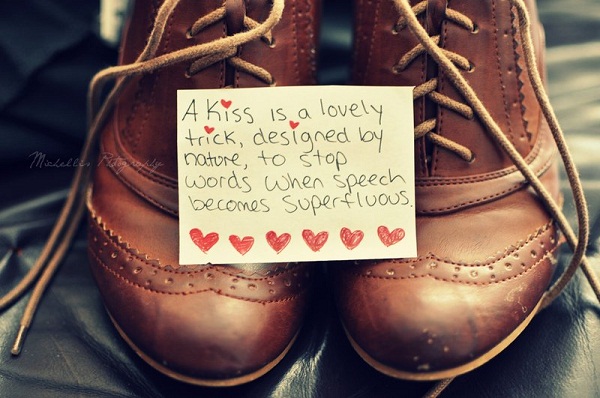 A kiss is a lovely
trick, designed by
nature, to stop
words when speech
becomes superfluous.
Michelle's Photography